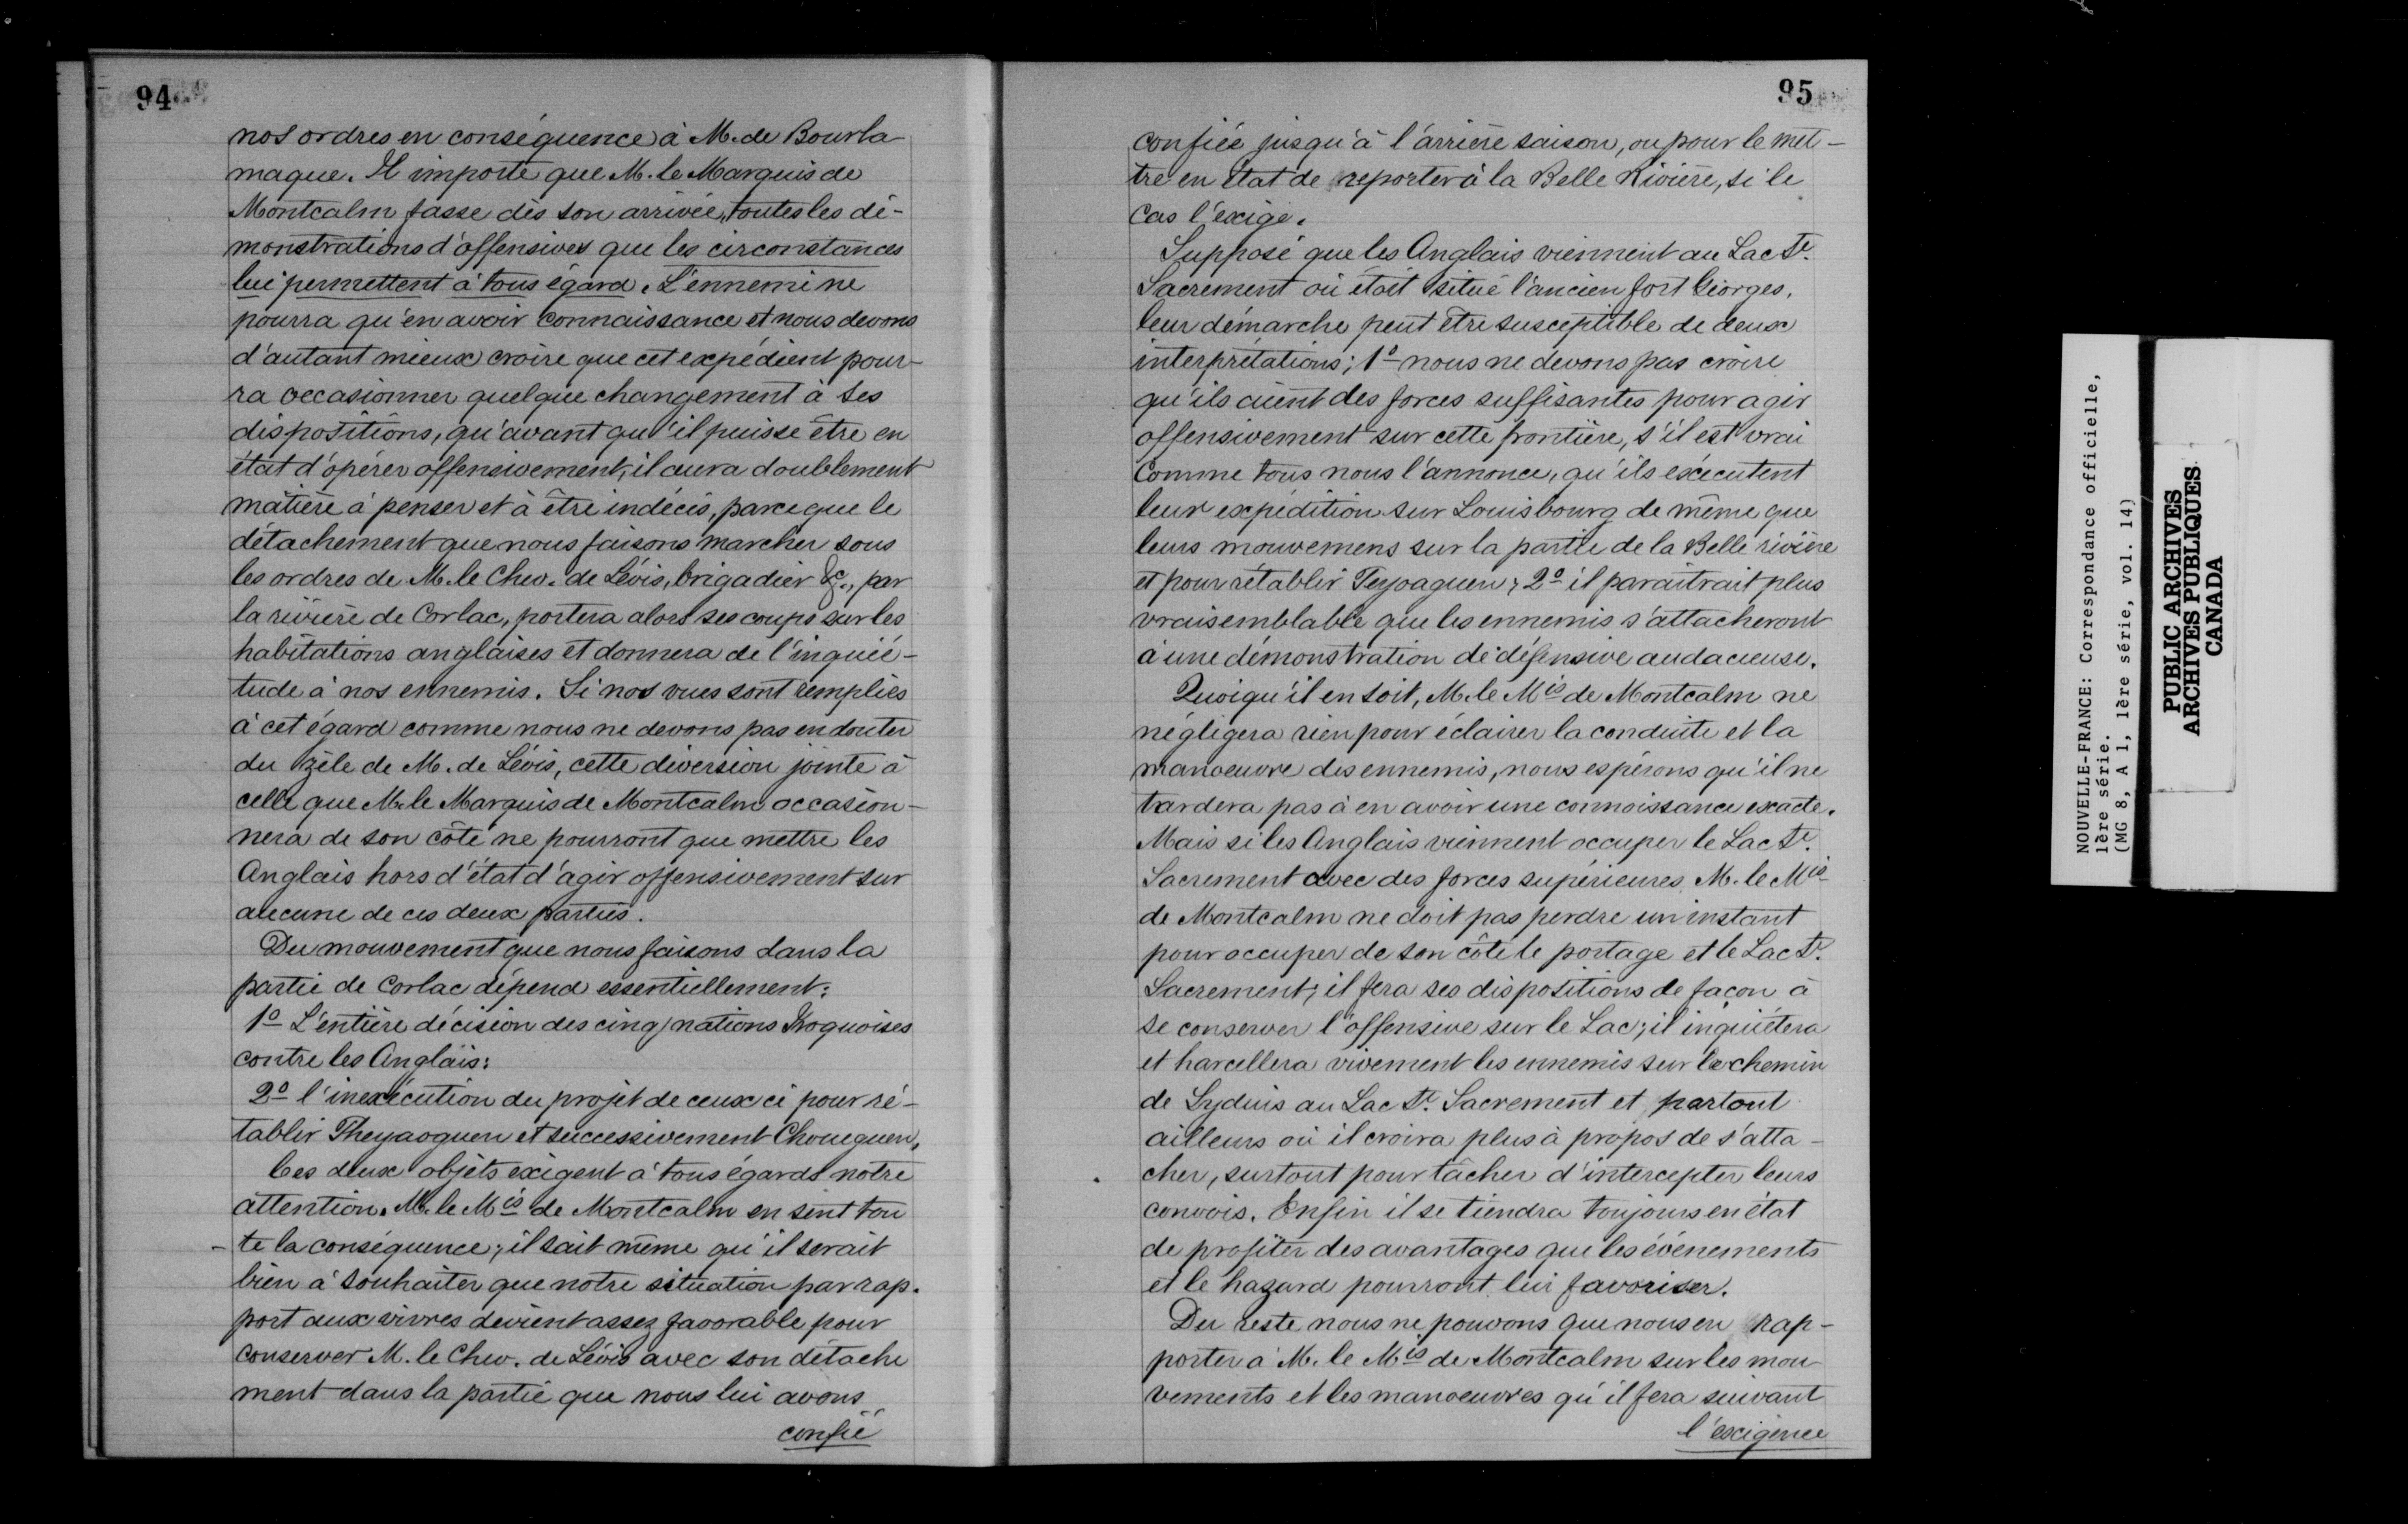 94
nos ordres en conséquence à M. de Bourla
maque. Il importe que M. le Marquis de
Montcalm fasse dès son arrivée, toutes les dé-
monstrations d'offensives que les circonstances
lui permettent à tous égard. L'ennemi ne
pourra qu'en avoir connaissance et nous devons
d'autant mieux croire que cet expédient pour-
ra occasionner quelque changement à ses
dispositions, qu'avant qu'il puisse être en
état d'opérer offensivement, il aura doublement
matière à penser et à être indécis, parce que le
détachement que nous faisons marcher sous
les ordres de M. le Chev. de Lévis, brigadier &c., par
la rivière de Corlac, portera alors ses coups sur les
habitations anglaises et donnera de l'inquié-
tude à nos ennemis. Si nos vues sont remplies
à cet égard comme nous ne devons pas en douter
du zèle de M. de Lévis, cette diversion jointe à
celle que M. le Marquis de Montcalm occasion-
nera de son côté ne pourront que mettre les
Anglais hors d'état d'agir offensivement sur
aucune de ces deux parties.
Du mouvement que nous faisons dans la
partie de Corlac dépend essentiellement:
1º L'entière décision des cinq nations Iroquoises
contre les Anglais:
2º l'inexécution du projet de ceux ci pour ré-
tablir Theyaoguen et successivement Choueguen,
Ces deux objets exigent à tous égards notre
attention. M. le Mis de Montcalm en sent tou
-te la conséquence; il sait même qu'il serait
bien à souhaiter que notre situation par rap.
port aux vivres devient assez favorable pour
conserver M. le Chev. de Lévis avec son détache
ment dans la partie que nous lui avons
confié
95
confiée jusqu'à l'arrière saison, ou pour le met-
tre en état de reporter à la Belle Rivière, si le
cas l'exige.
Supposé que les Anglais viennent au Lac St.
Sacrement où était situé l'ancien fort Georges,
leur démarche peut être susceptible de deux
interprétations; 1º nous ne devons pas croire
qu'ils aient des forces suffisantes pour agir
offensivement sur cette frontière, s'il est vrai
comme tous nous l'annonce, qu'ils exécutent
leur expédition sur Louisbourg de même que
leurs mouvemens sur la partie de la Belle rivière
et pour rétablir Teyoaguen; 2º il paraîtrait plus
vraisemblable que les ennemis s'attacheront
à une démonstration de défensive audacieuse.
Quoiqu'il en soit, M. le Mis de Montcalm ne
négligera rien pour éclairer la conduite et la
manoeuvre des ennemis, nous espérons qu'il ne
tardera pas à en avoir une connoissance exacte.
Mais si les Anglais viennent occuper le Lac St.
Sacrement avec des forces supérieures, M. le Mis
de Montcalm ne doit pas perdre un instant
pour occuper de son côté le portage et le Lac St.
Sacrement; il fera ses dispositions de façon à
se conserver l'offensive sur le Lac; il inquiétera
et harcellera vivement les ennemis sur le chemin
de Lydius au Lac St. Sacrement et partout
ailleurs où il croira plus à propos de s'atta-
cher, surtout pour tâcher d'intercepter leurs
convois. Enfin il se tiendra toujours en état
de profiter des avantages que les événements
et le hazard pourront lui favoriser.
Du reste nous ne pouvons que nous en rap-
porter à M. le Mis de Montcalm sur les mou
vements et les manoeuvres qu'il fera suivant
l'exigence
NOUVELLE-FRANCE: Correspondance officielle,
1ère série.
(MG 8, A 1, 1ère série, vol. 14)
PUBLIC ARCHIVES
ARCHIVES PUBLIQUES
CANADA